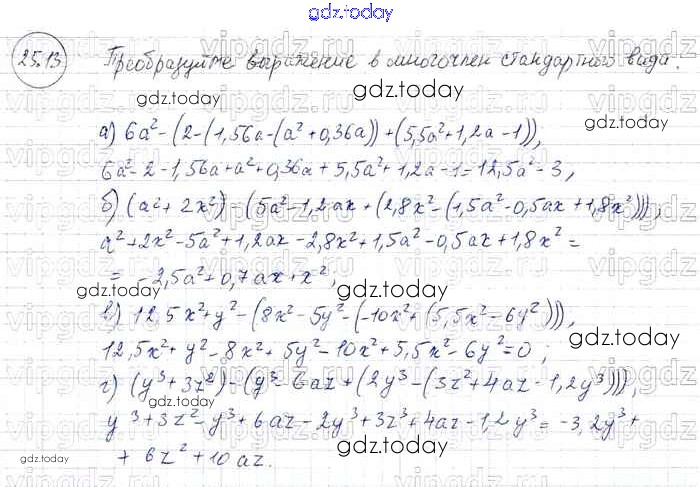 gdz.today
25.13. Преобразуйте выражение в многочлен стандартного вида.
gdz.today
gdz.today
а) 6a² - (2 - (1,56a - (a² + 0,36a)) + (5,5a² + 1,2a - 1)),
6a² - 2 - 1,56a + a² + 0,36a + 5,5a² + 1,2a - 1 = 12,5a² - 3,
gdz.today
б) (a² + 2x²) - (5a² - 1,2ax + (2,8x² - (1,5a² - 0,5ax + 1,8x²))),
gdz.today
a² + 2x² - 5a² + 1,2ax - 2,8x² + 1,5a² - 0,5ax + 1,8x² =
= -2,5a² + 0,7ax + x²;
gdz.today
gdz.today
в) 12,5x² + y² - (8x² - 5y² - (-10x² + (5,5x² - 6y²))),
gdz.today
12,5x² + y² - 8x² + 5y² - 10x² + 5,5x² - 6y² = 0;
gdz.today
г) (y³ + 3z²) - (y³ - 6az + (2y³ - (3z² + 4az - 1,2y³))),
gdz.today
y³ + 3z² - y³ + 6az - 2y³ + 3z² + 4az - 1,2y³ = -3,2y³ +
gdz.today
gdz.today
+ 6z² + 10az.